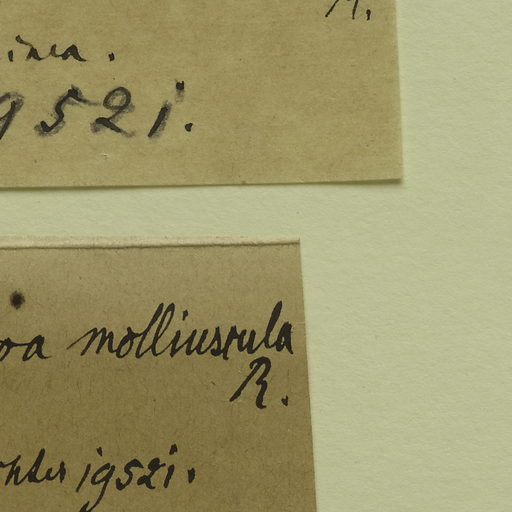 R.
inea.
9521.
oa molliuscula
R.
19521.